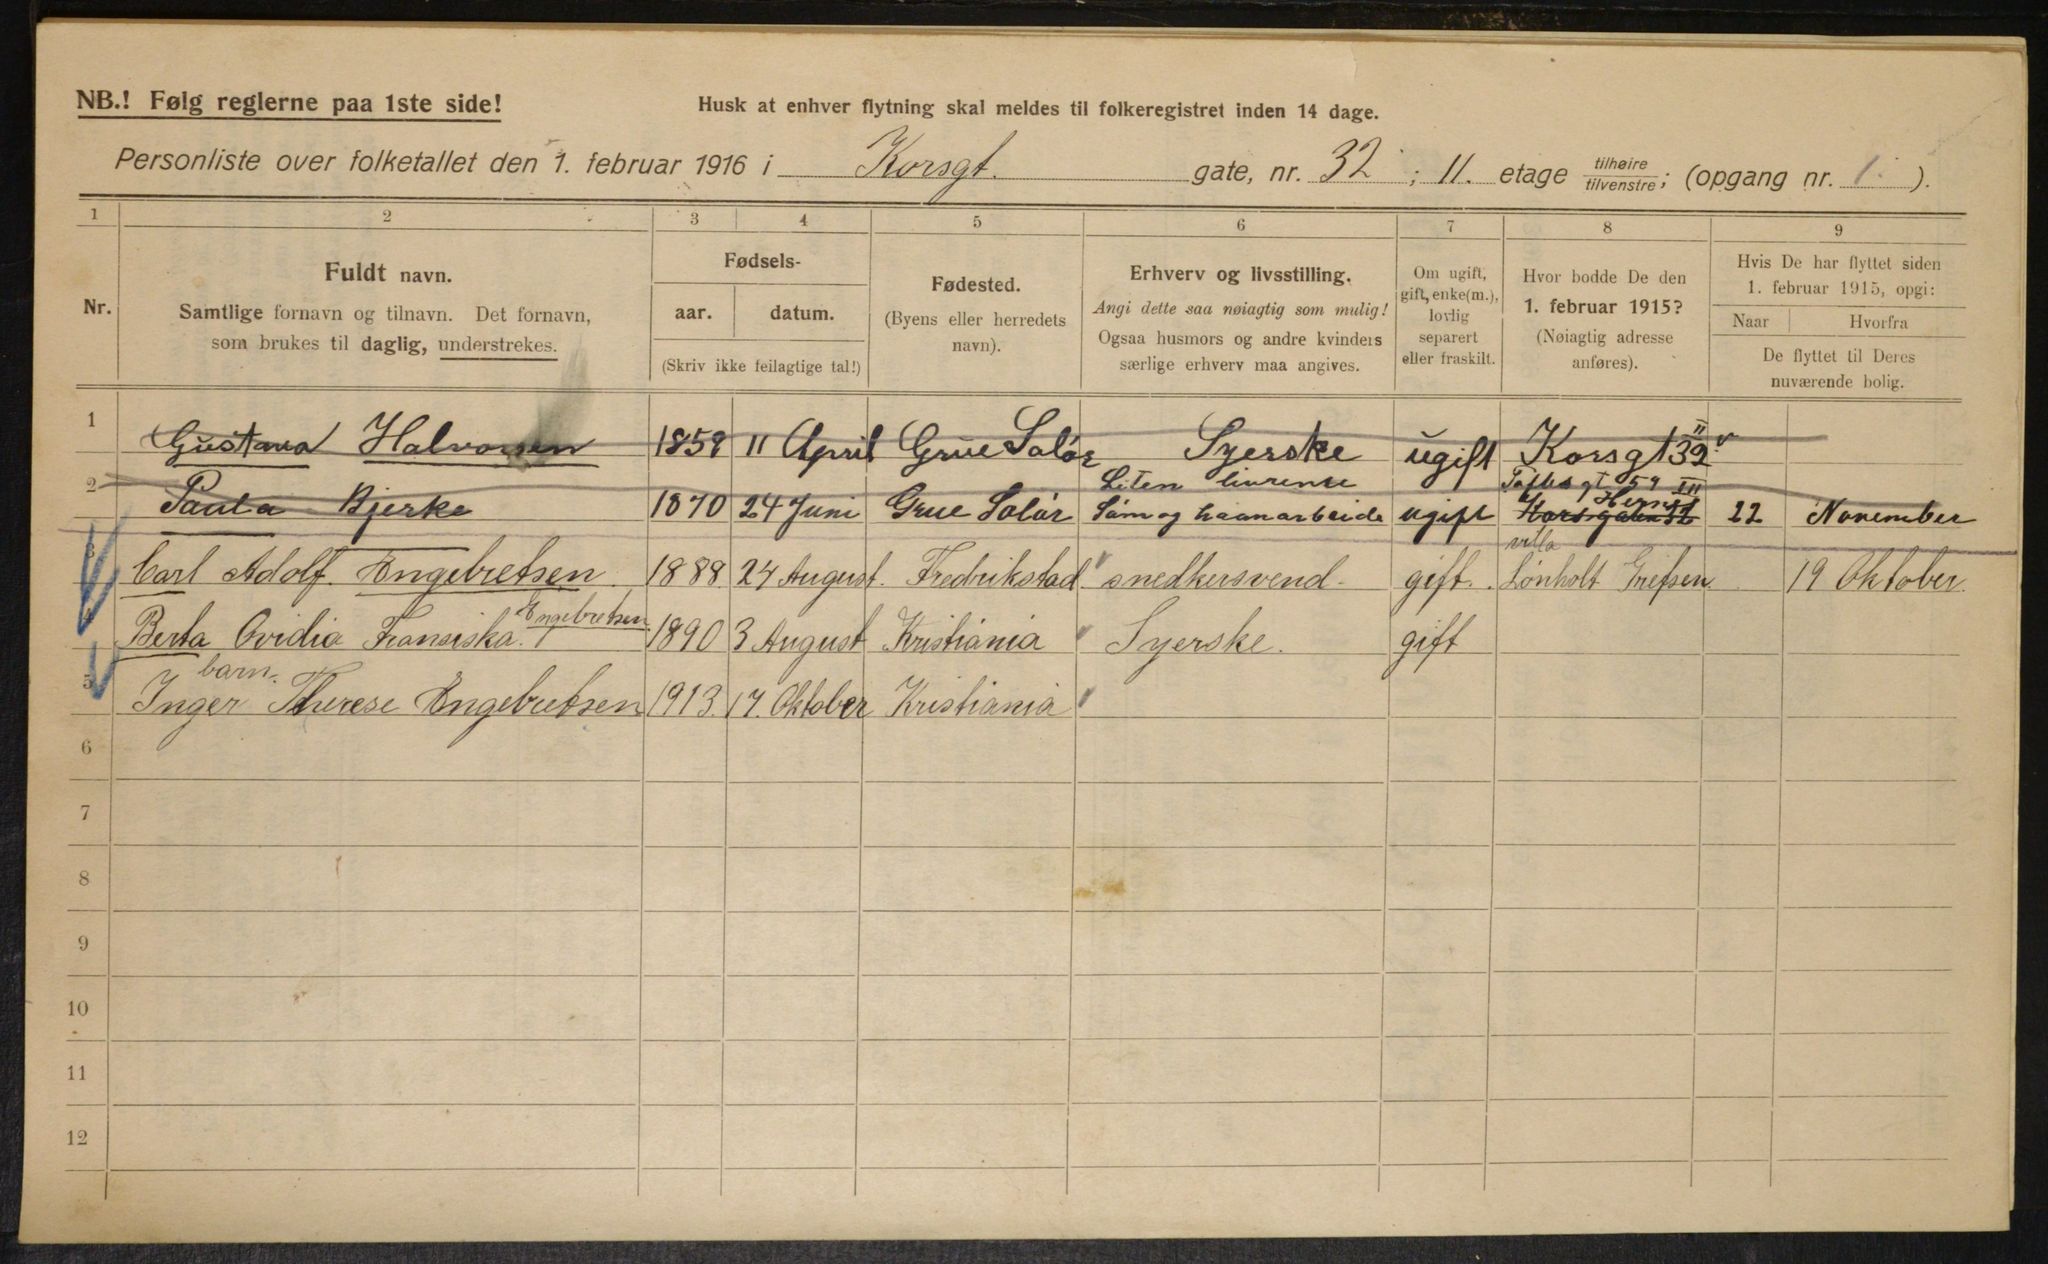 NB.! Følg reglerne paa 1ste side!
Husk at enhver flytning skal meldes til folkeregistret inden 14 dage.
Personliste over folketallet den 1. februar 1916 i Korsgt. gate, nr. 32 ; II. etage tilhøire/tilvenstre; (opgang nr. 1. ).
1 2 3 4 5 6 7 8 9
Nr.
Fuldt navn.
Samtlige fornavn og tilnavn. Det fornavn,
som brukes til daglig, understrekes.
Fødsels-
aar. datum.
(Skriv ikke feilagtige tal!)
Fødested.
(Byens eller herredets
navn).
Erhverv og livsstilling.
Angi dette saa nøiagtig som mulig!
Ogsaa husmors og andre kvinders
særlige erhverv maa angives.
Om ugift,
gift, enke(m.),
lovlig
separert
eller fraskilt.
Hvor bodde De den
1. februar 1915?
(Nøiagtig adresse
anføres).
Hvis De har flyttet siden
1. februar 1915, opgi:
Naar Hvorfra
De flyttet til Deres
nuværende bolig.
1 Gustava Halvorsen 1859 11 April Grue Solör Syerske ugift Korsgt 32 II v
Liten livrente Toftesgt 59 III
2 Paula Bjerke 1870 24 Juni Grue Solör Söm og haanarbeide ugift Korsgaten 32 22 November
villa
3 Carl Adolf Engebretsen. 1888 24 August. Fredrikstad snedkersvend. gift. Lönholt Grefsen. 19 Oktober.
4 Berta Ovidia Fransiska. Engebretsen 1890 3 August Kristiania Syerske. gift
barn.
5 Inger Therese Engebretsen 1913. 17. Oktober Kristiania
6
7
8
9
10
11
12